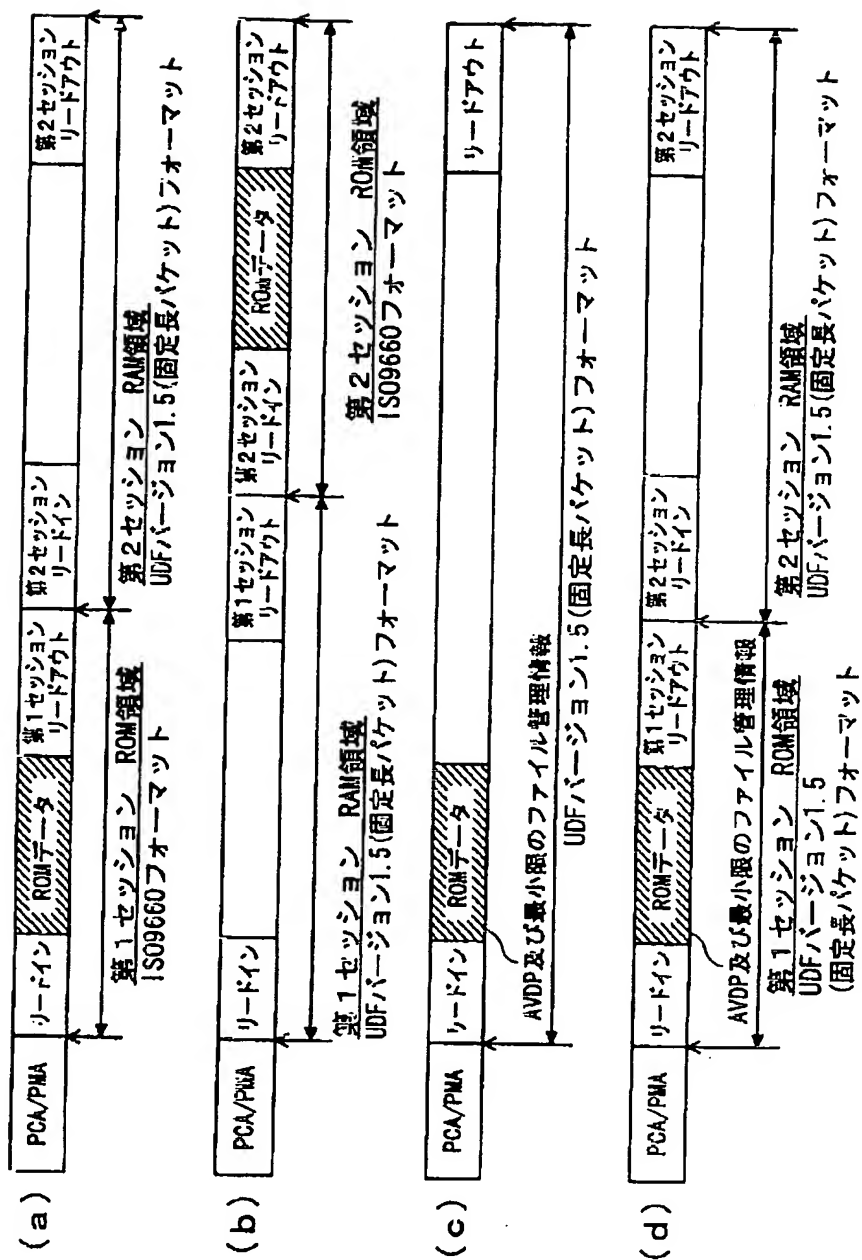 (a)
PCA/PMA
リードイン
ROMデータ
第1セッション
リードアウト
第2セッション
リードイン
第2セッション
リードアウト
第1セッション ROM領域
ISO9660フォーマット
第2セッション RAM領域
UDFバージョン1.5(固定長パケット)フォーマット
(b)
PCA/PMA
リードイン
第1セッション
リードアウト
第2セッション
リードイン
ROMデータ
第2セッション
リードアウト
第1セッション RAM領域
UDFバージョン1.5(固定長パケット)フォーマット
第2セッション ROM領域
ISO9660フォーマット
(c)
PCA/PMA
リードイン
ROMデータ
リードアウト
AVDP及び最小限のファイル管理情報
UDFバージョン1.5(固定長パケット)フォーマット
(d)
PCA/PMA
リードイン
ROMデータ
第1セッション
リードアウト
第2セッション
リードイン
第2セッション
リードアウト
AVDP及び最小限のファイル管理情報
第1セッション ROM領域
UDFバージョン1.5
(固定長パケット)フォーマット
第2セッション RAM領域
UDFバージョン1.5(固定長パケット)フォーマット